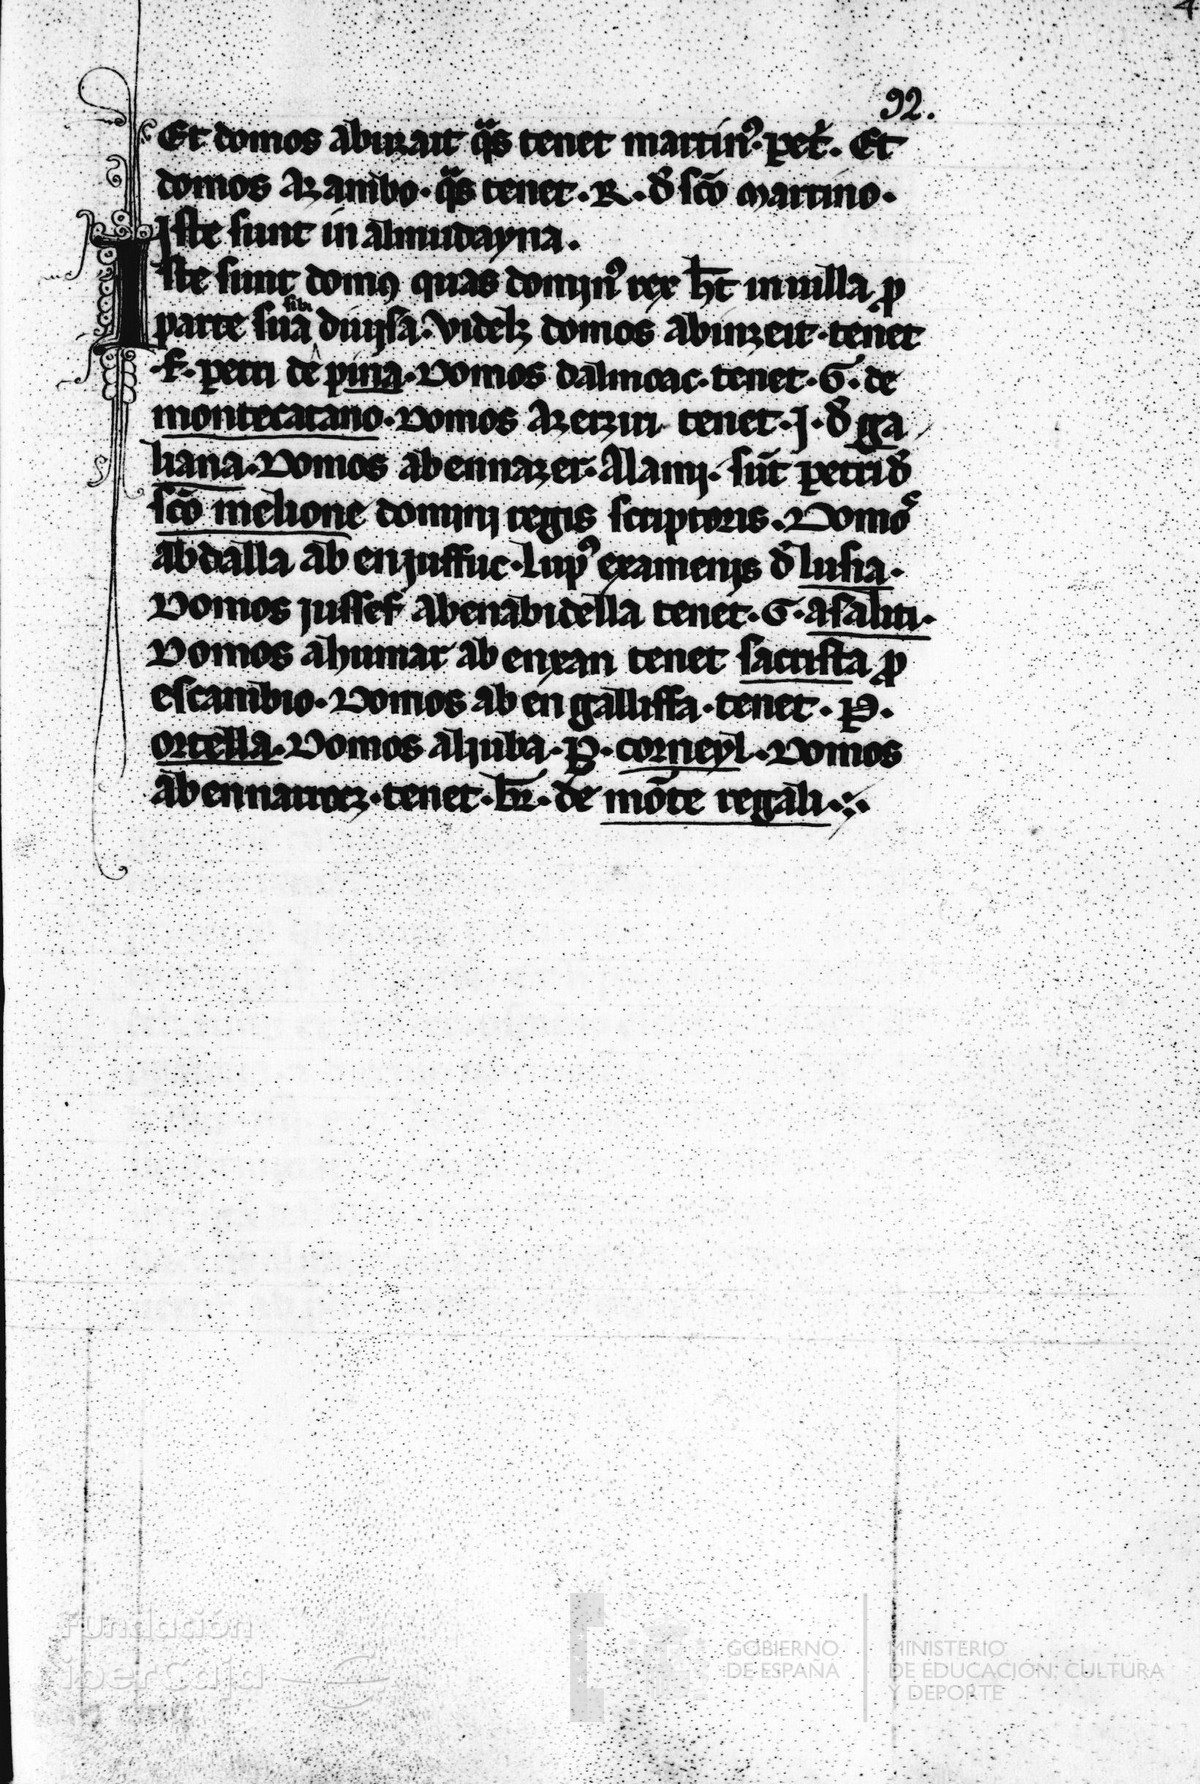 92.
Et domos abinzait q̃s tenet martin⁹ · pet̃. Et
domos Azambo · q̃s tenet · R · đ sc̃o martino ·
Iste sunt in almudayna .
Iste sunt domꝰ quas domin⁹ rex h̃t in uilla p̱
sibi
parte sua diuisa · videlꝫ domos abinzeit · tenet
· f · petri de pina · Domos dalmoac · tenet · G · de
montecatano · Domos Azerziri tenet · J · đ ga
liana · Domos abennazer · Alami · sũt petri đ
sc̃o melione domini regis scriptoris . Domos
abdalla aben juffuc · lup⁹ examenis đ lusia ·
Domos jussef abenabidella tenet · G · asaliti ·
Domos ahumar abenxan tenet sacrista p̱
escambio · Domos aben galliffa · tenet · P ·
ortella · Domos aljuba · P · corneyl · Domos
abennarrocz · tenet · br̃ · de mõte regali
Fundación
iberCaja
GOBIERNO
DE ESPAÑA
MINISTERIO
DE EDUCACIÓN, CULTURA
Y DEPORTE